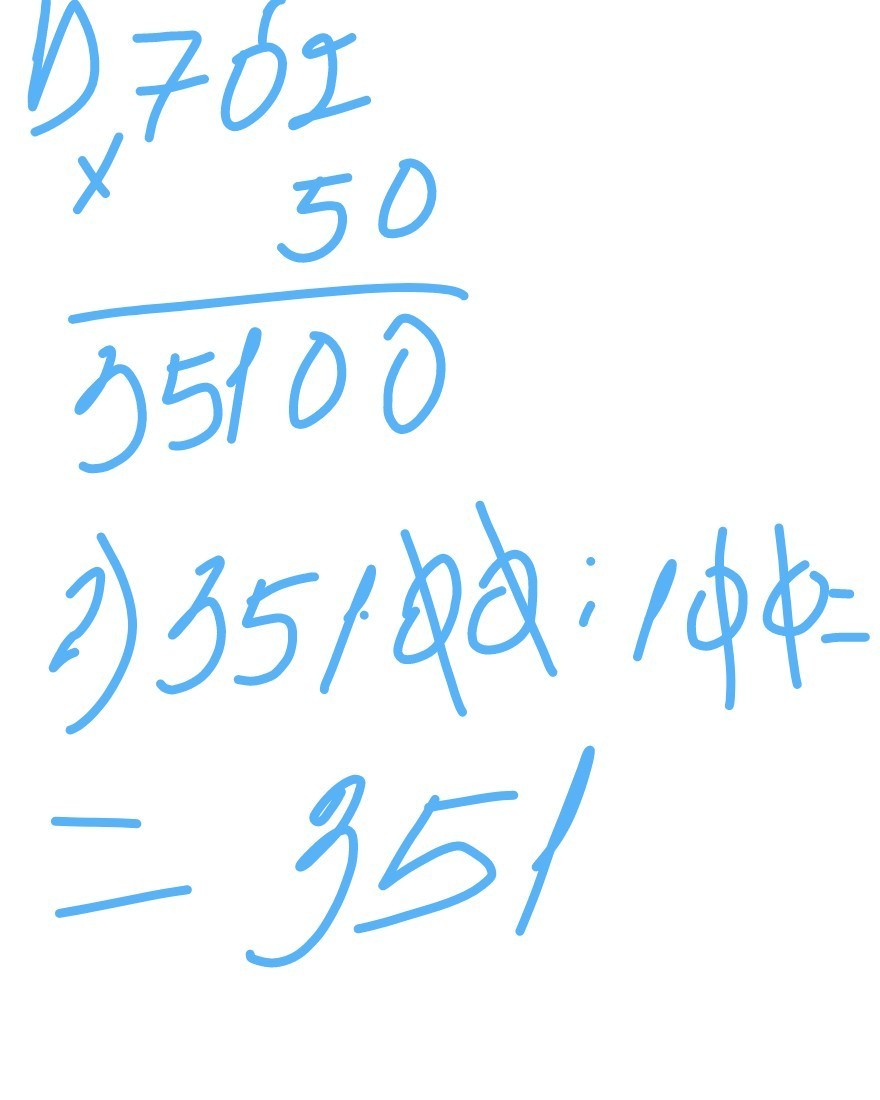 1) 762
× 50
35100
2) 35100 : 100 =
= 351